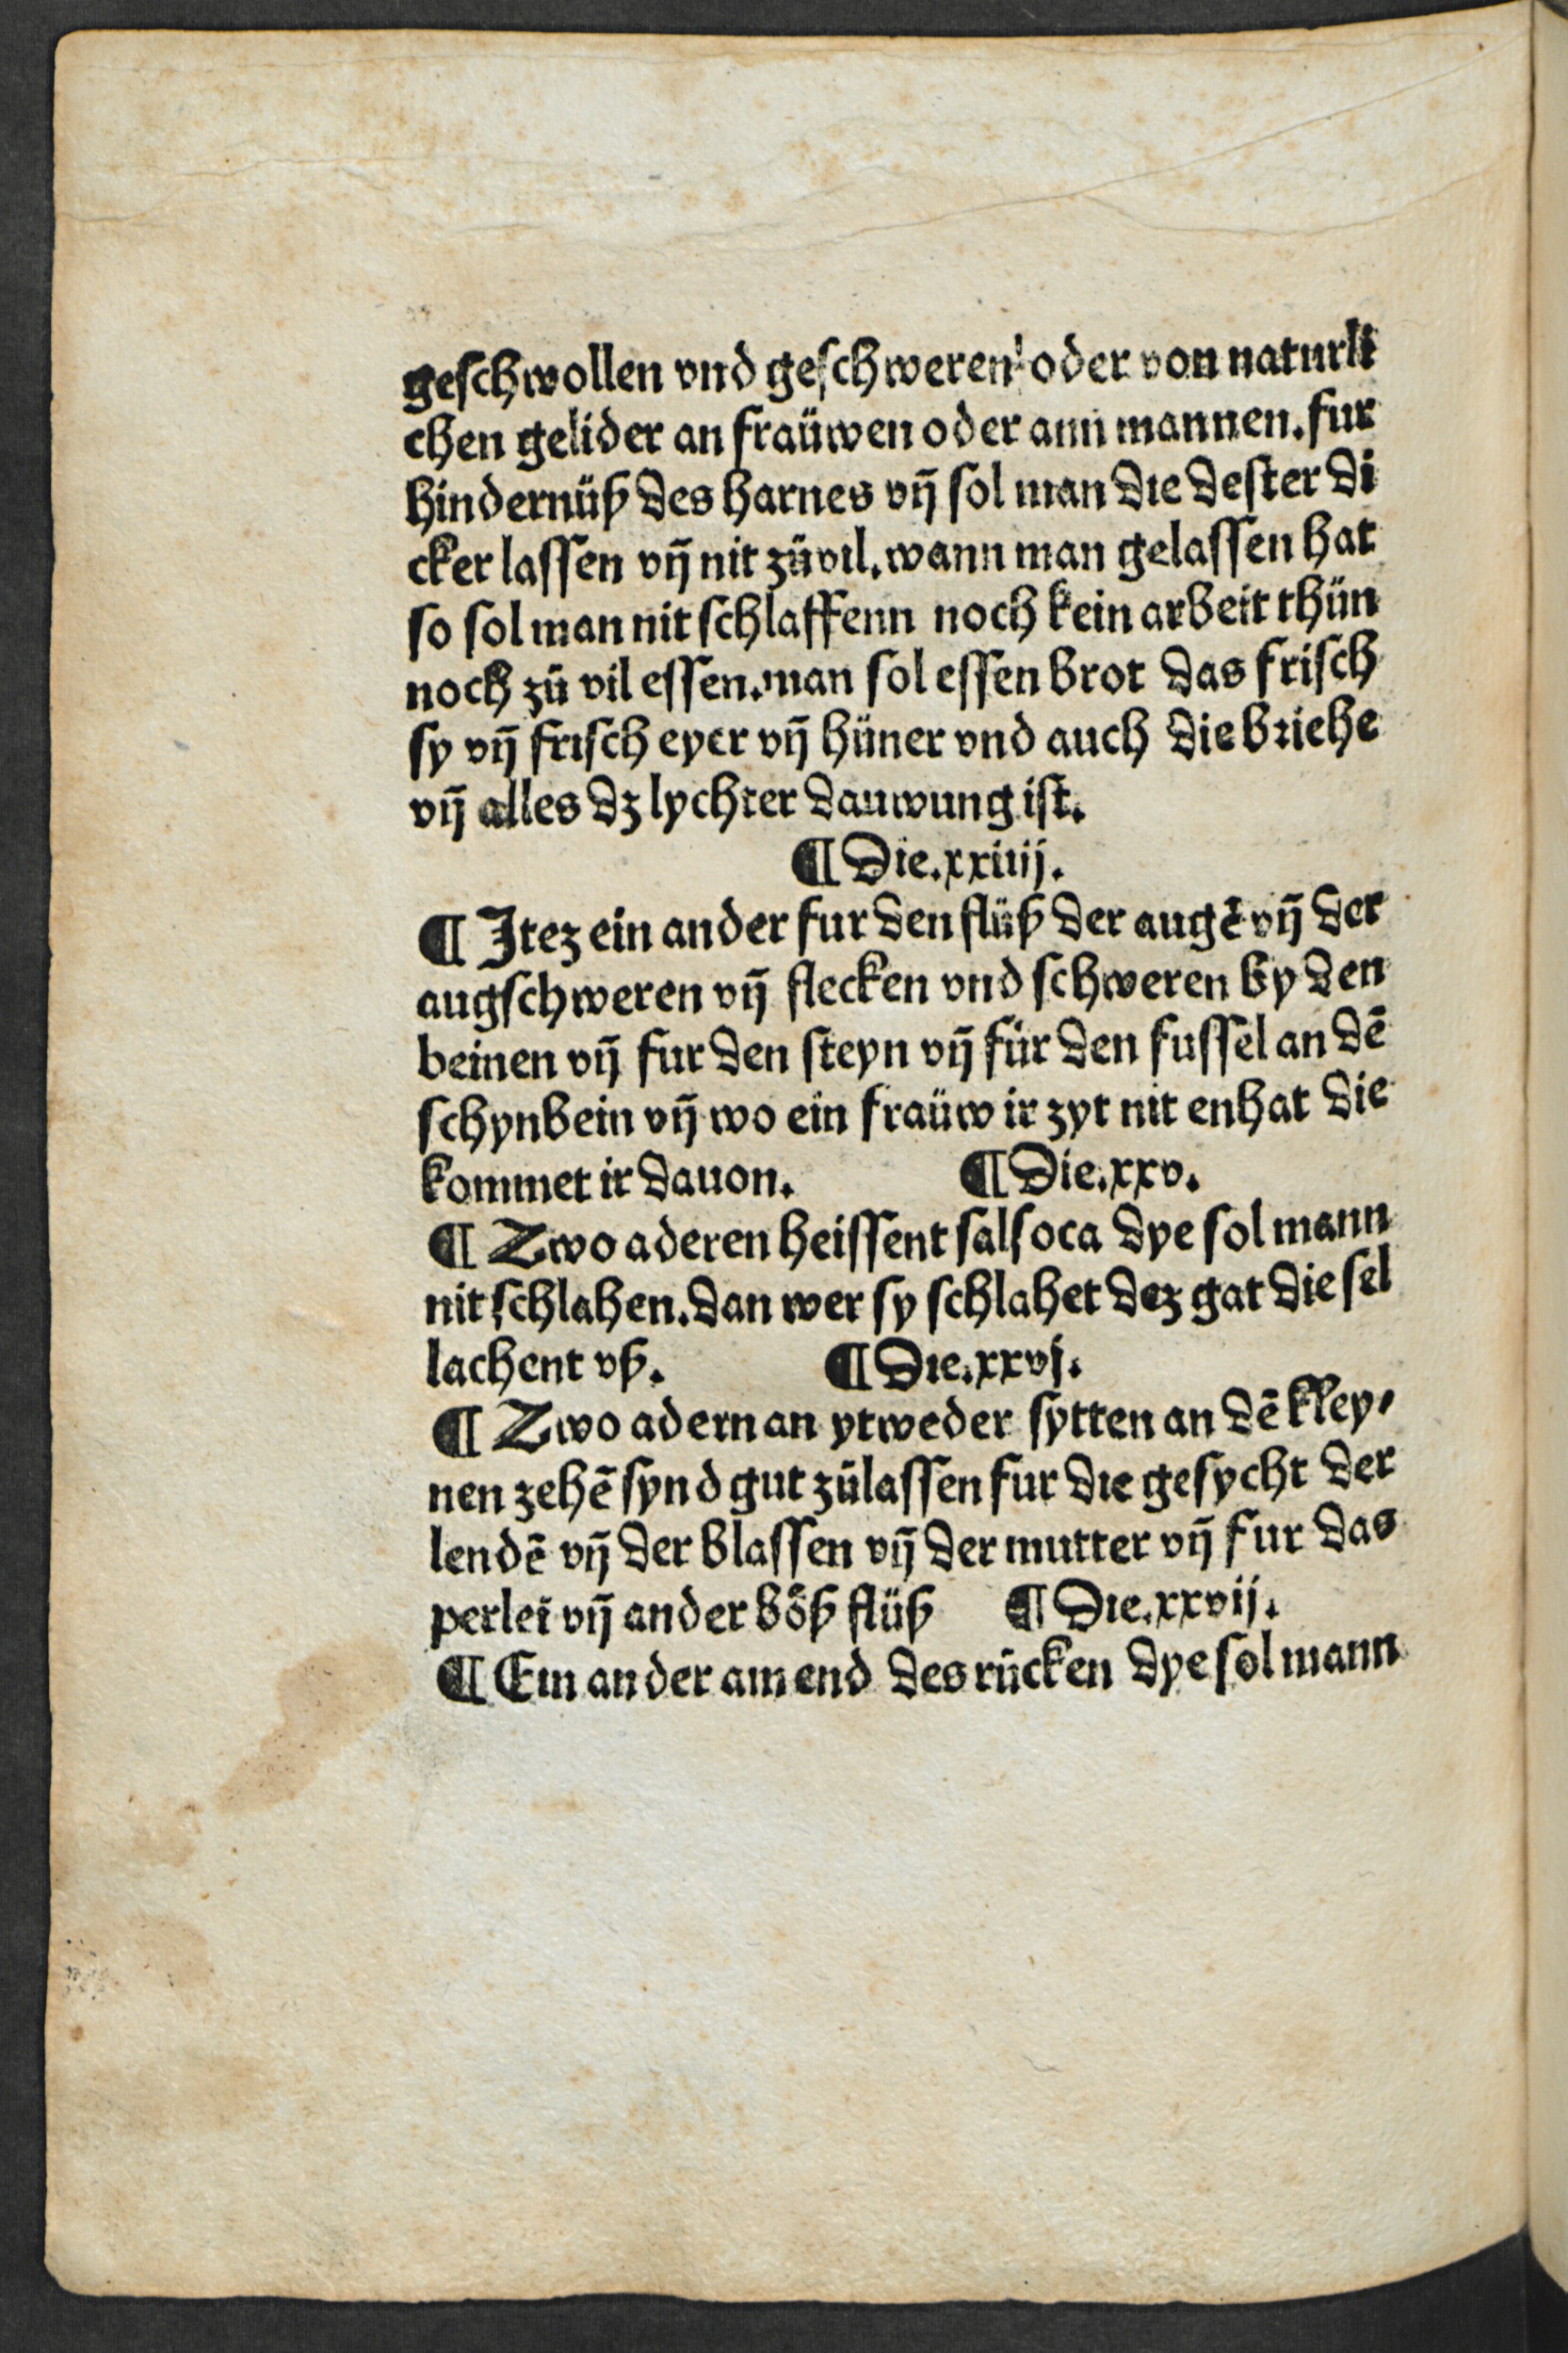 geschwollen vnd geschweren oder von naturli
chen gelider an fraüwen oder ann mannen. fur
hindernüß des harnes vñ sol man die dester di
cker lassen vñ nit züvil. wann man gelassen hat
so sol man nit schlaffenn noch kein arbeit thün
noch zü vil essen. man sol essen brot das frisch
sy vñ frisch eyer vñ hüner vnd auch die briehe
vñ alles dz lychter dauwung ist.
¶ Die. xxiiij.
¶ Itez ein ander fur den flüß der augē vñ der
augschweren vñ flecken vnd schweren by den
beinen vñ fur den steyn vñ für den fussel an dē
schynbein vñ wo ein fraüw ir zyt nit enhat die
kommet ir dauon. ¶ Die. xxv.
¶ Zwo aderen heissent salsoca dye sol mann
nit schlahen. dan wer sy schlahet dez gat die sel
lachent vß. ¶ Die. xxvj.
¶ Zwo adern an ytweder sytten an dē kley⸗
nen zehē synd gut zülassen fur die gesycht der
lendē vñ der blassen vñ der mutter vñ fur das
perlei vñ ander böß flüß ¶ Die. xxvij.
¶ Ein ander am end des rücken dye sol mann